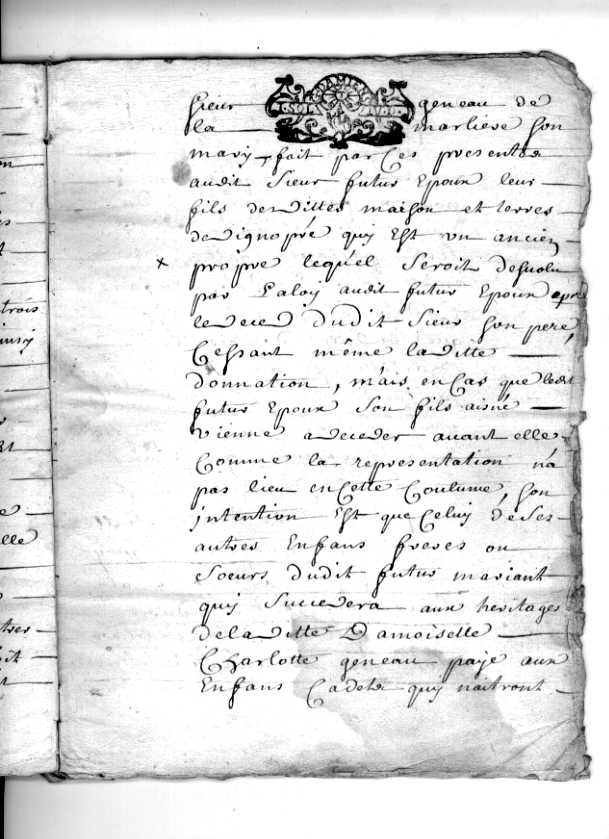 Sieur geneau de
la marliere son
mary, fait par Ces presentes
audit Sieur futur Epoux leur
fils desdittes maison et terres
de vignopré quy Est un ancien
x propre lequel Seroit desvolu
par La loy audit futur Epoux apres
le deced dudit Sieur son pere,
Cessant même laditte
donnation, mais en Cas que ledit
futur Epoux Son fils aisné
vienne a deceder avant elle
Comme la representation n'a
pas lieu en Cette Coutume, son
jntention Est que Celuy de Ses
autres Enfans freres ou
Soeurs dudit futur mariant
quy Succedera aux heritages
de laditte Damoiselle
Charlotte geneau paye aux
Enfans Cadets quy naitront
trois
elle